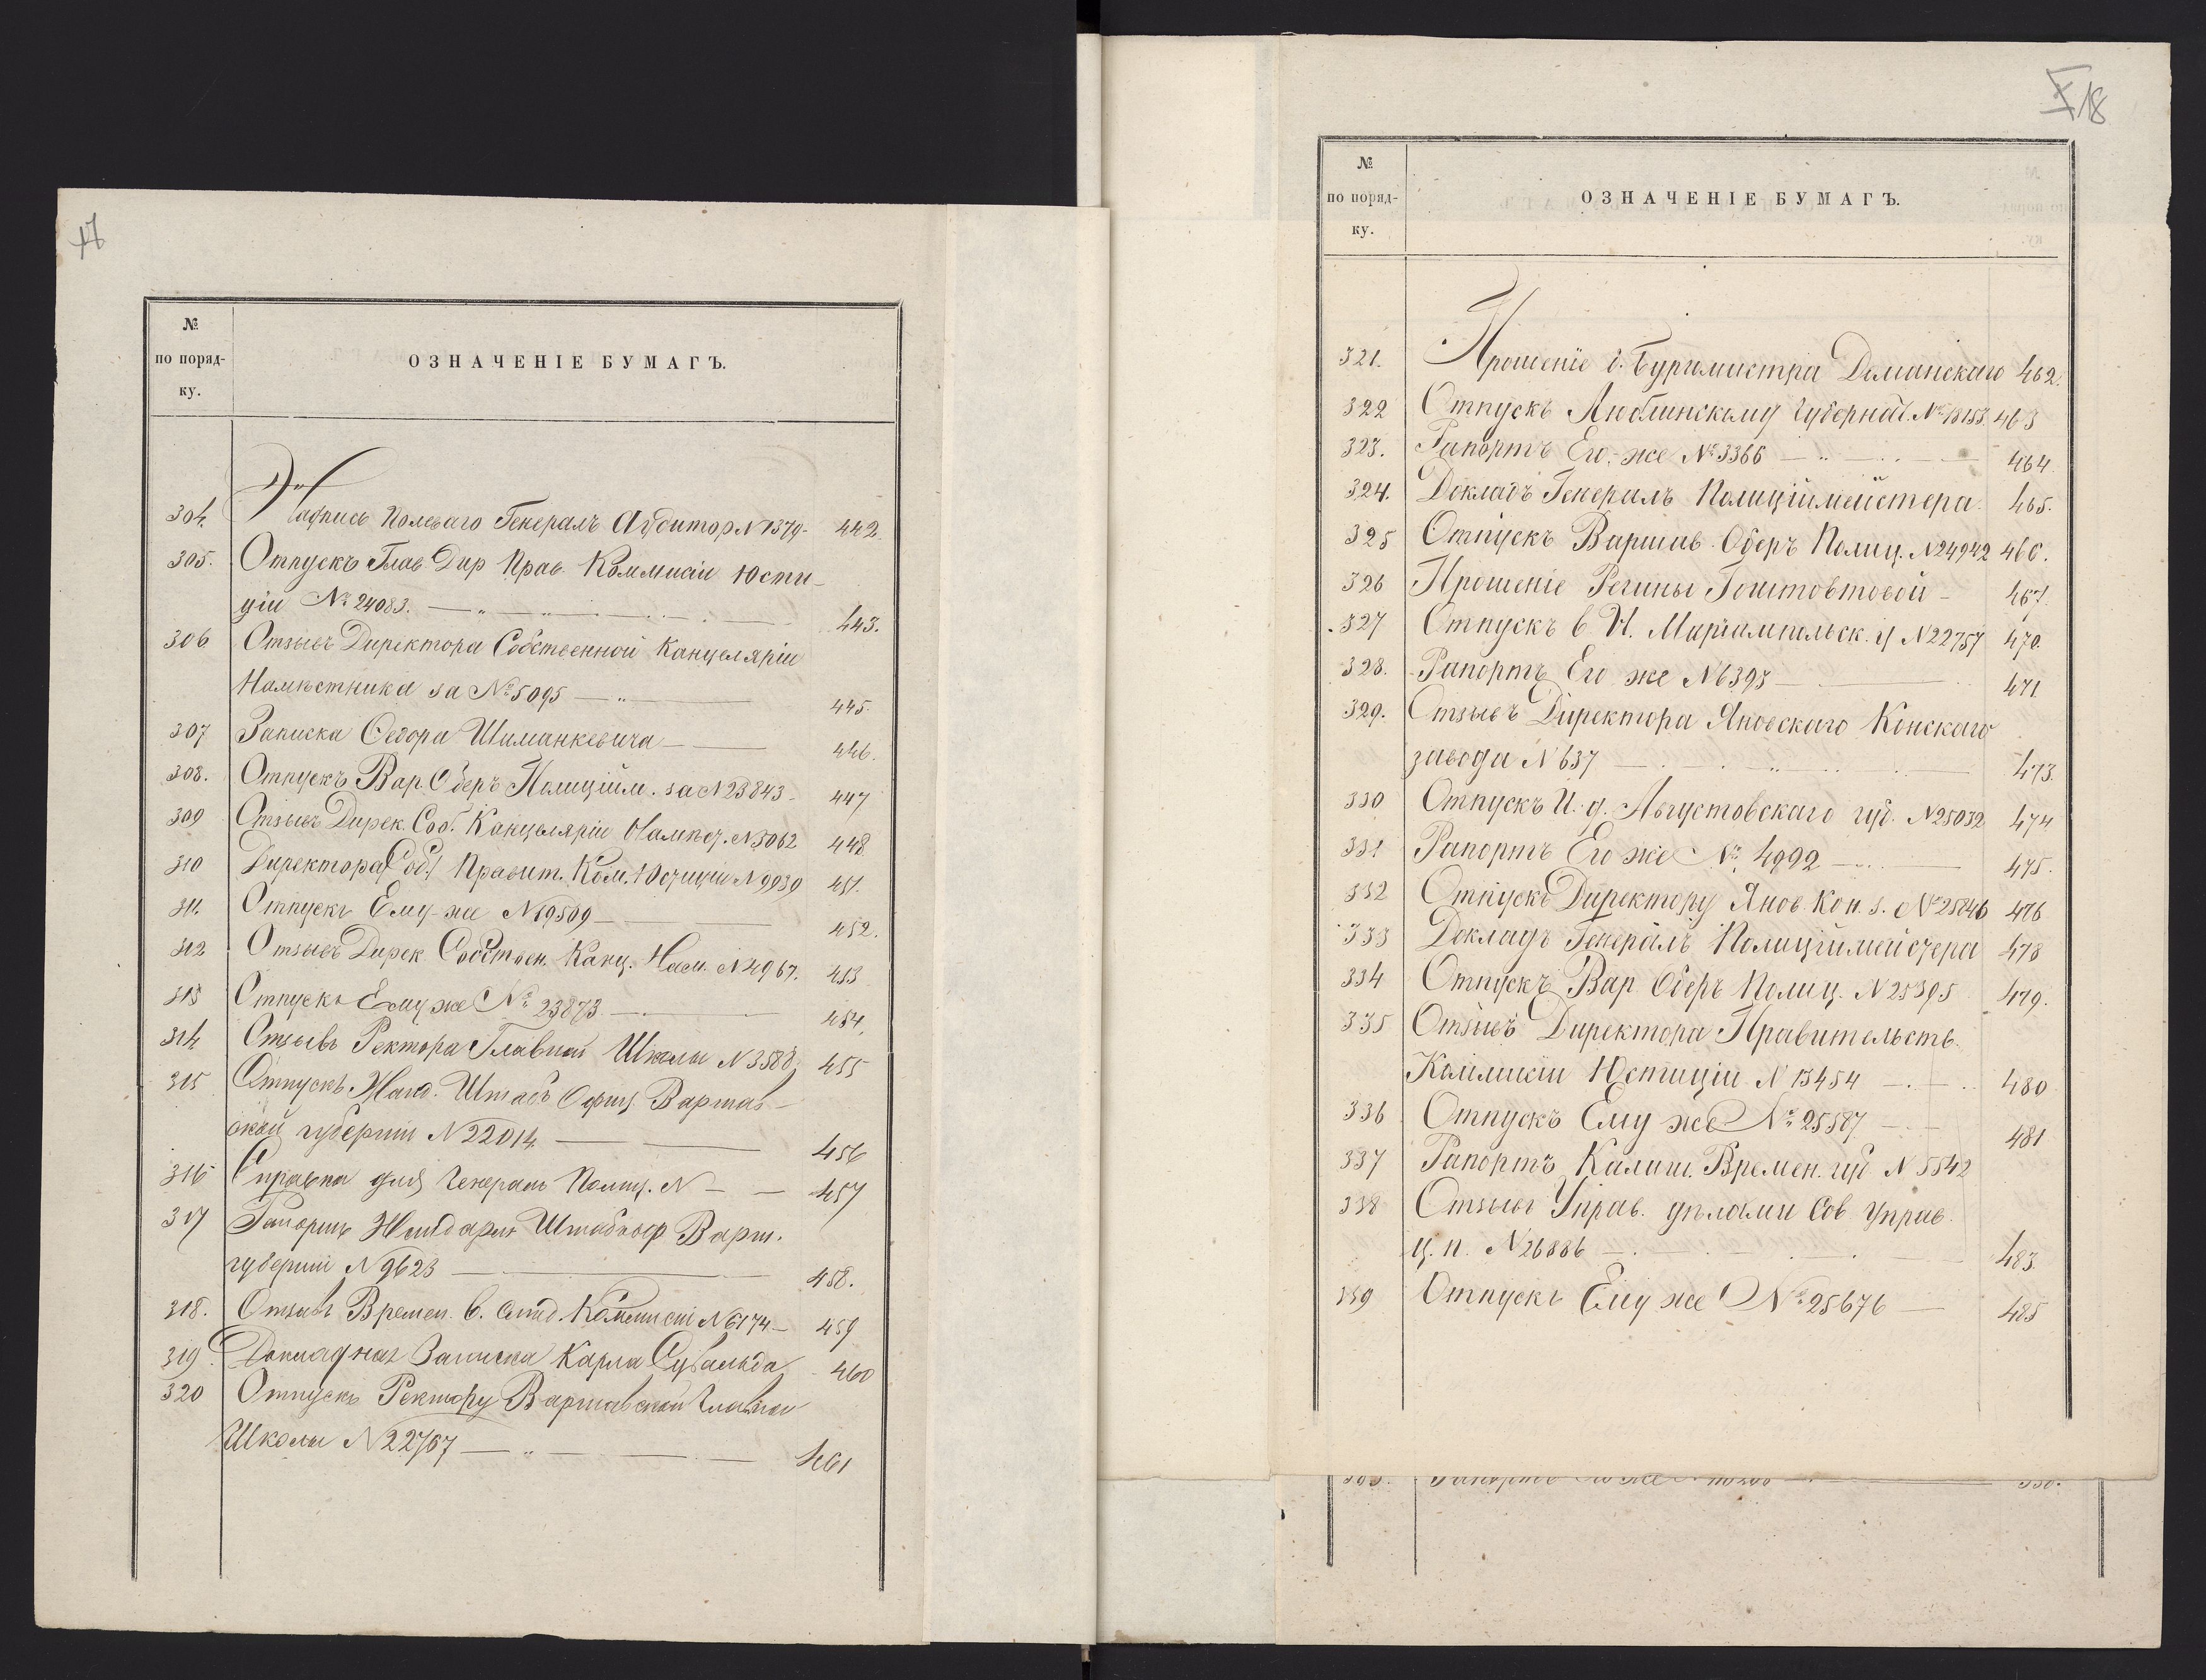 17
№
по поряд-
ку.
ОЗНАЧЕНІЕ БУМАГЪ.
304. Надпись Полеваго Генералъ Аудитор N 1379 - 442.
305. Отпускъ Глав Дир Прав. Коммисіи Юсти-
ціи № 24083. 443.
306 Отзывъ Директора Собственной Канцеляріи
Намѣстника за № 5095 445.
307 Записка Федора Шиманкевича 446.
308. Отпускъ Вар. Оберъ Полиційм. за N 23843 - 447
309 Отзывъ Дирек. Соб. Канцеляріи Намѣст. N 5062 448
310 Директора Правит. Ком. Юстиціи N 9939 451.
311. Отпускъ Ему-же N 19509 452.
312 Отзывъ Дирек. Собствен. Канц. Нам. N 4967. 453
313 Отпускъ Ему же № 23873 454.
314 Отзывъ Ректора Главной Школы N 3588 455
315 Отпускъ Жанд. Штабъ Офиц. Варшав-
ской губерніи N 22014 456
316 Справка для Генералъ Полиц. N — — 457
317 Рапортъ Жандарм Штабъ оф Варш.
губерніи N 9623 458.
318. Отзывъ Времен. В. Слѣд. Коммисіи N 6174 — 459
319. Докладная Записка Карла 460
320 Отпускъ Ректору Варшавской Главной
Школы N 22767 461
X 18
№
по поряд-
ку.
ОЗНАЧЕНІЕ БУМАГЪ.
321. Прошеніе б. Бургмистра Доманскаго 462.
322 Отпускъ Люблинскому Губернат. № 18153. 463
323. Рапортъ Его-же № 3366 464.
324. Докладъ Генералъ Полиціймейстера. 465.
325 Отпускъ Варшав. Оберъ Полиц. N 24942 466.
326 Прошеніе Регины Гоштовтовой - 467.
327 Отпускъ В. Н. Маріампольск. у N 22757 470.
328. Рапортъ Его же N 6395 471
329. Отзывъ Директора Яновскаго Конскаго
завода N 637 473.
330 Отпускъ И. д. Августовскаго губ. N 25032 474
331 Рапортъ Его же № 4992 475.
332 Отпускъ Директору Янов. Кон. з. № 25246 476
333 Докладъ Генералъ Полиціймейстера 478
334 Отпускъ Вар Оберъ Полиц. N 25395 479.
335 Отзывъ Директора Правительств.
Коммисіи Юстиціи N 13454 480
336 Отпускъ Ему же № 25587 481
337 Рапортъ Калиш. Времен. губ N 5542
338 Отзывъ Управ. дѣлами Сов. Управ.
Ц. П. N 26886 483.
339 Отпускъ Ему же № 25676 485
Рапортъ Его же